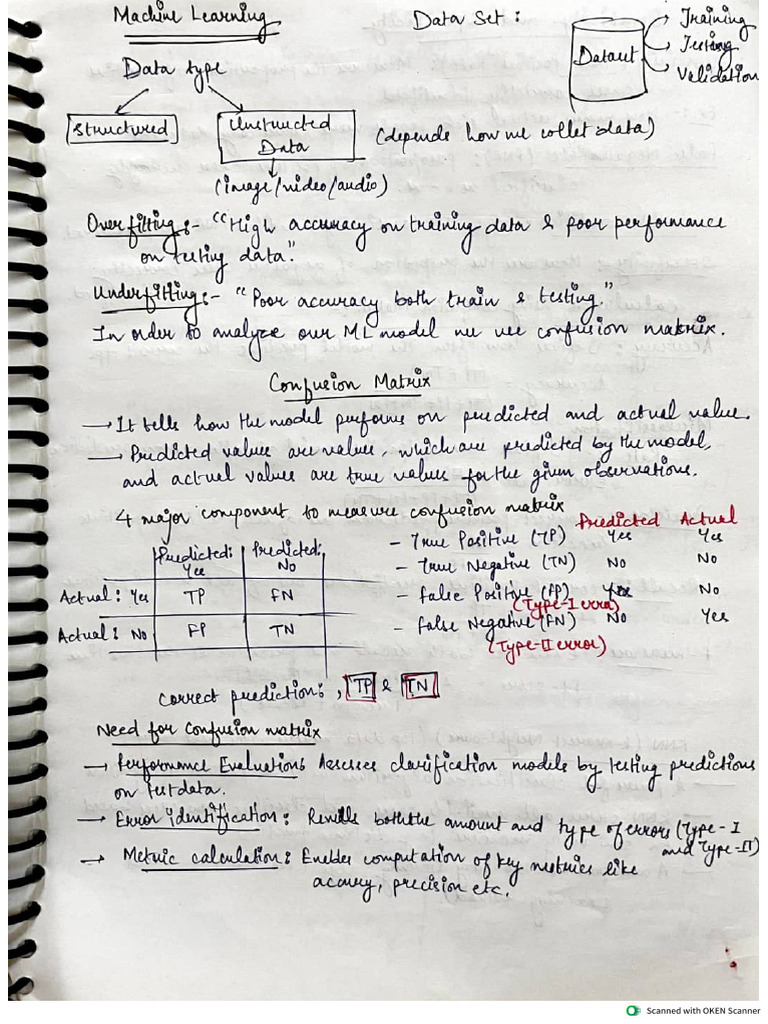 Machine Learning
Data Set :
Dataset
Training
Testing
Validation
Data type
Structured
Unstructed
Data
(depends how we collet data)
(image/video/audio)
Overfitting :- "High accuracy on training data & poor performance
on testing data."
Underfitting :- "Poor accuracy both train & testing."
In order to analyze our ML model we use confusion matrix.
Confusion Matrix
→ It tells how the model performs on predicted and actual value.
→ Predicted values are values, which are predicted by the model,
and actual values are true values for the given observations.
4 major component to measure confusion matrix
Predicted Actual
- True Positive (TP) Yes Yes
- True Negative (TN) No No
- False Positive (FP) Yes No
(Type-I error)
- False Negative (FN) No Yes
(Type-II error)
Predicted: Yes Predicted: No
Actual : Yes TP FN
Actual : No FP TN
Correct predictions, TP & TN
Need for Confusion matrix
→ Performance Evaluation: Assesses classification models by testing predictions
on test data.
→ Error identification : both the amount and type of errors (Type-I
and Type-II)
→ Metric calculation : Enables computation of key metrics like
precision etc.
Scanned with OKEN Scanner